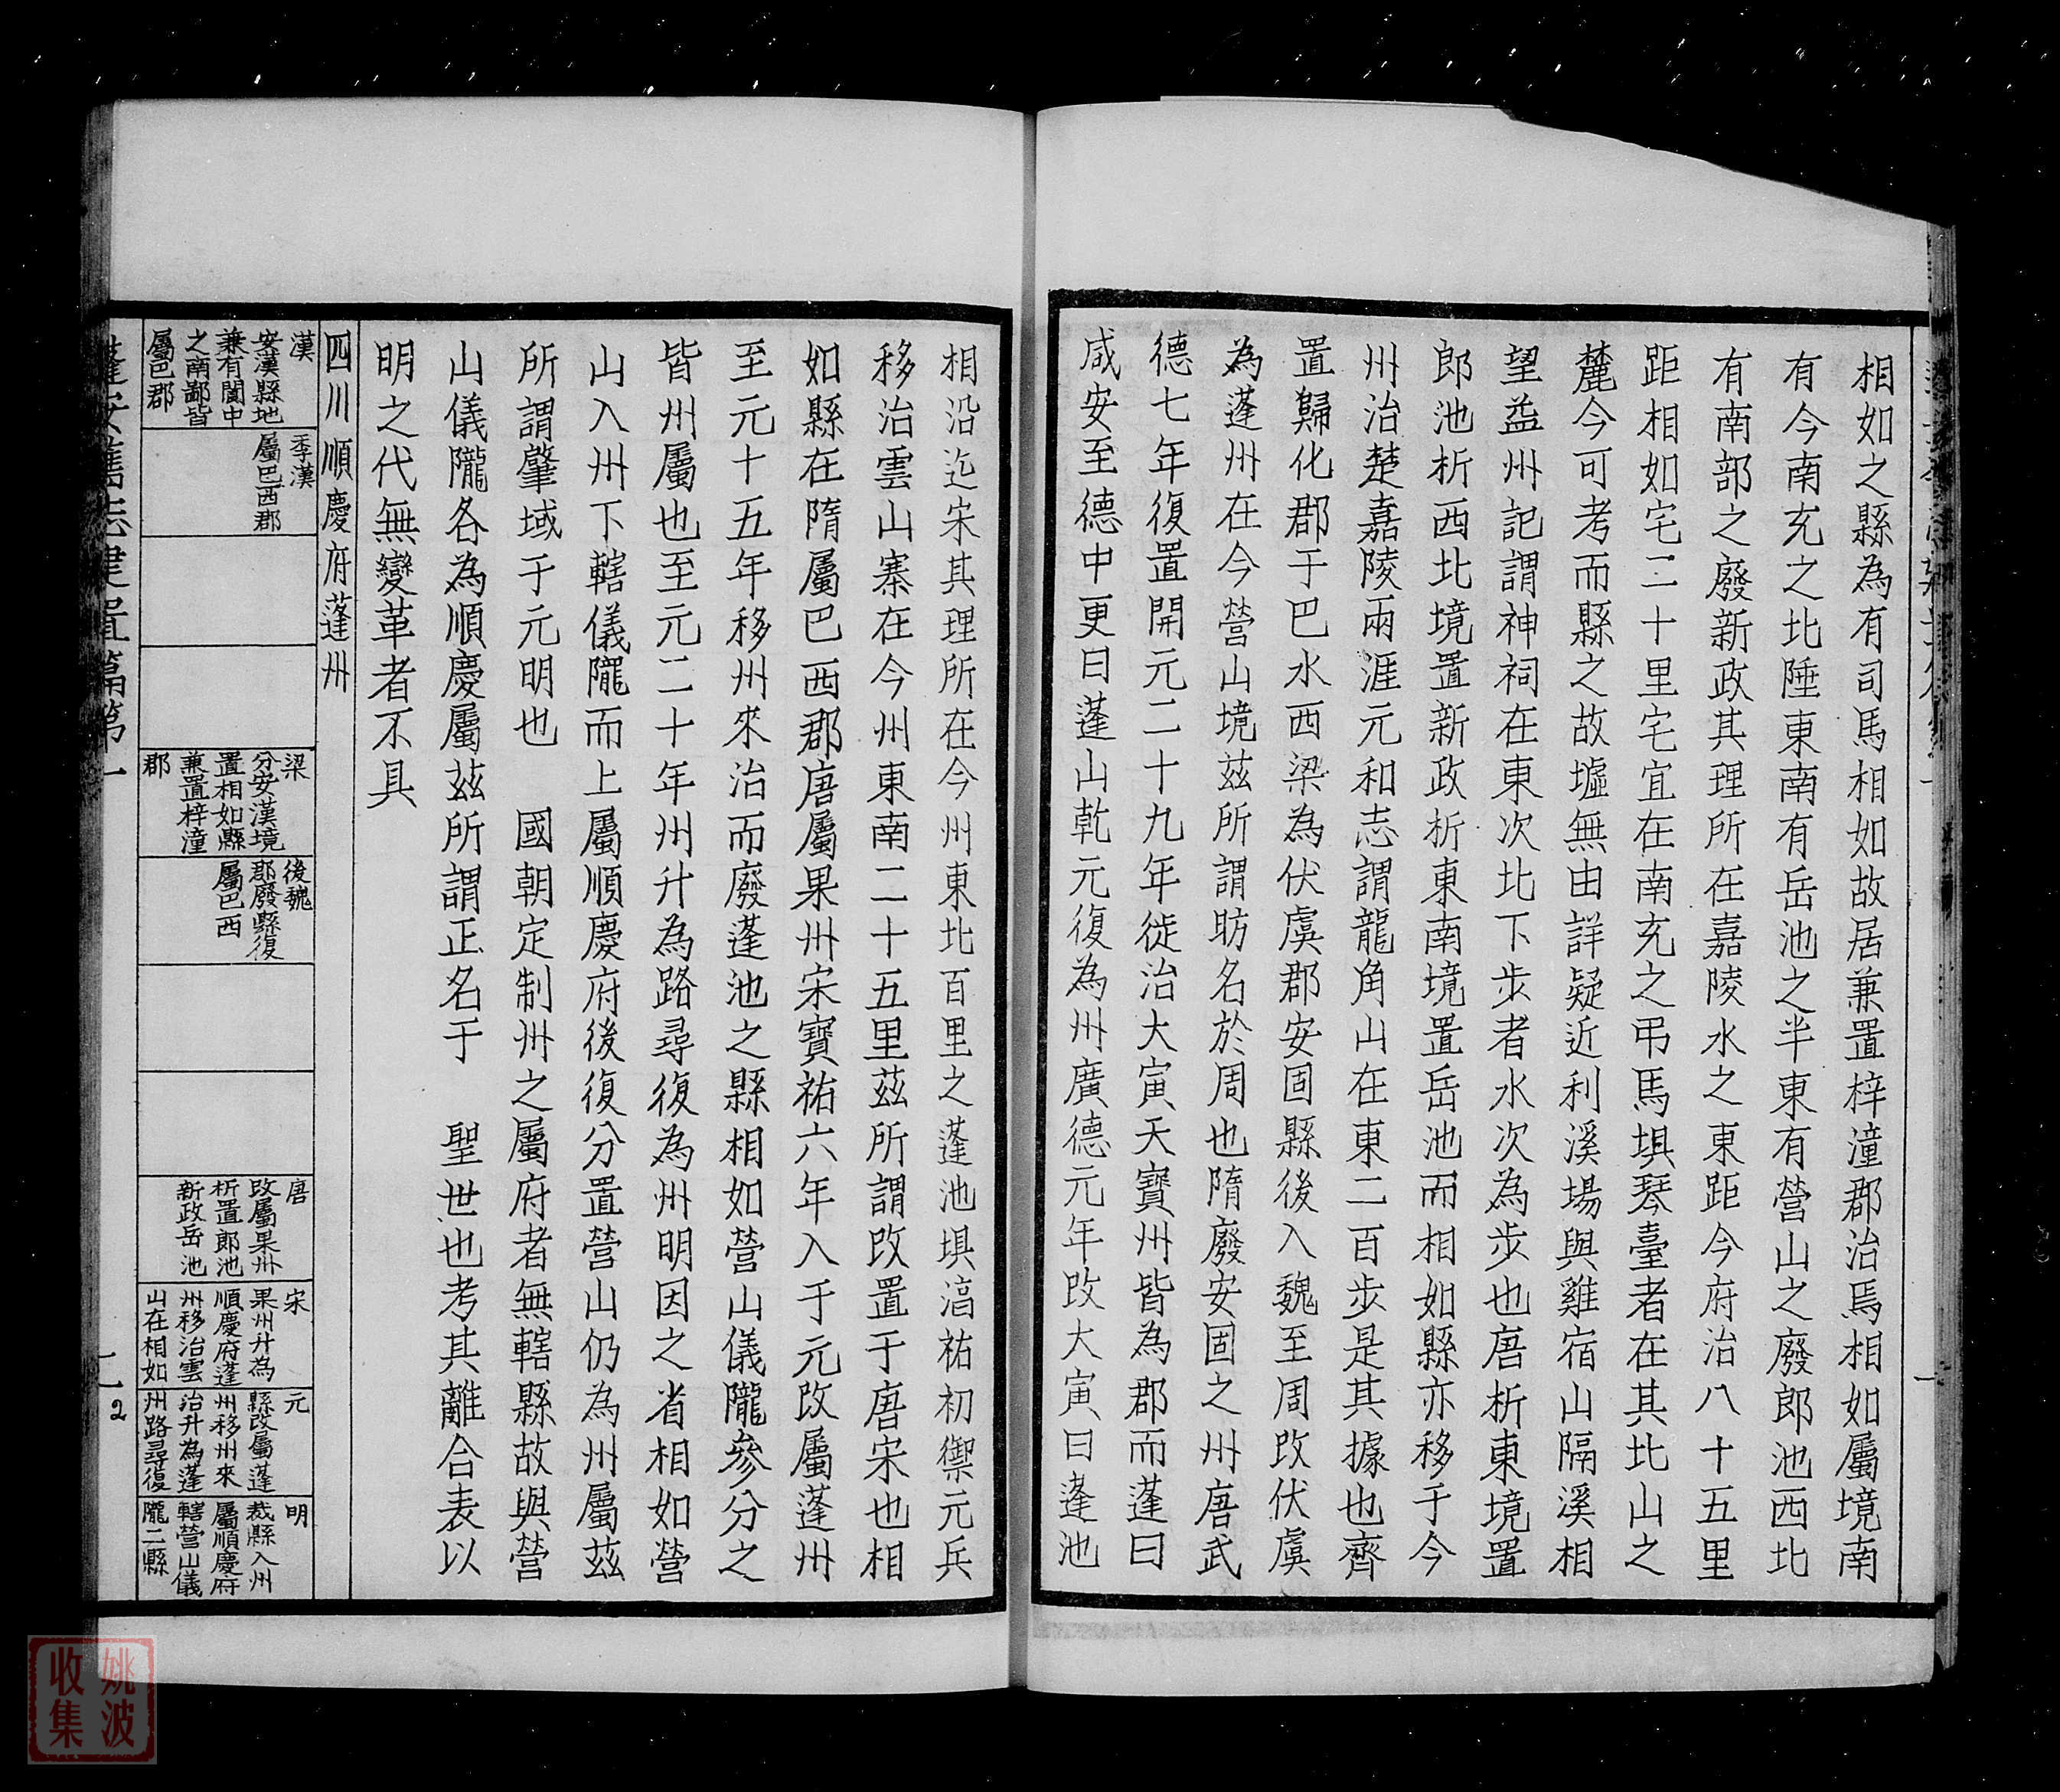 相如之縣為有司馬相如故居兼置梓潼郡治焉相如屬境南
有今南充之北陲東南有岳池之半東有營山之廢郎池西北
有南部之廢新政其理所在嘉陵水之東距今府治八十五里
距相如宅二十里宅宜在南充之弔馬埧琴臺者在其北山之
麓今可考而縣之故墟無由詳疑近利溪場與雞宿山隔溪相
望益州記謂神祠在東次北下步者水次為步也唐析東境置
郎池析西北境置新政折東南境置岳池而相如縣亦移于今
州治楚嘉陵兩涯元和志謂龍角山在東二百步是其據也齊
置歸化郡于巴水西梁為伏虞郡安固縣後入魏至周改伏虞
為蓬州在今營山境茲所謂昉名於周也隋廢安固之州唐武
德七年復置開元二十九年徙治大寅天寶州皆為郡而蓬曰
咸安至德中更曰蓬山乾元復為州廣德元年改大寅曰蓬池
相沿迄宋其理所在今州東北百里之蓬池埧湻祐初禦元兵
移治雲山寨在今州東南二十五里茲所謂改置于唐宋也相
如縣在隋屬巴西郡唐屬果州宋寶祐六年入于元改屬蓬州
至元十五年移州來治而廢蓬池之縣相如營山儀隴參分之
皆州屬也至元二十年州升為路尋復為州明因之省相如營
山入州下轄儀隴而上屬順慶府後復分置營山仍為州屬茲
所謂肇域于元明也　國朝定制州之屬府者無轄縣故與營
山儀隴各為順慶屬茲所謂正名于　聖世也考其離合表以
明之代無變革者不具
四川順慶府蓬州
漢
安漢縣地
兼有閬中
之南鄙皆
屬巴郡
季漢
屬巴西郡
梁
分安漢境
置相如縣
兼置梓潼
郡
後魏
郡廢縣復
屬巴西
唐
改屬果州
析置郎池
新政岳池
宋
果州升為
順慶府蓬
州移治雲
山在相如
元
縣改屬蓬
州移州來
治升為蓬
州路尋復
明
裁縣入州
屬順慶府
轄營山儀
隴二縣
篇第一
二
2
姚波
收集